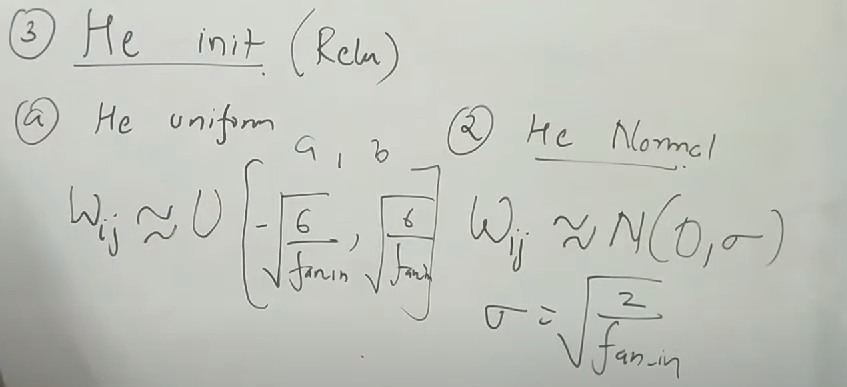 ③ He init (Relu)
ⓐ He uniform
a, b
Wij ≈ U [-√(6/fan in), √(6/fan in)]
② He Normal
Wij ≈ N(0, σ)
σ = √(2/fan-in)